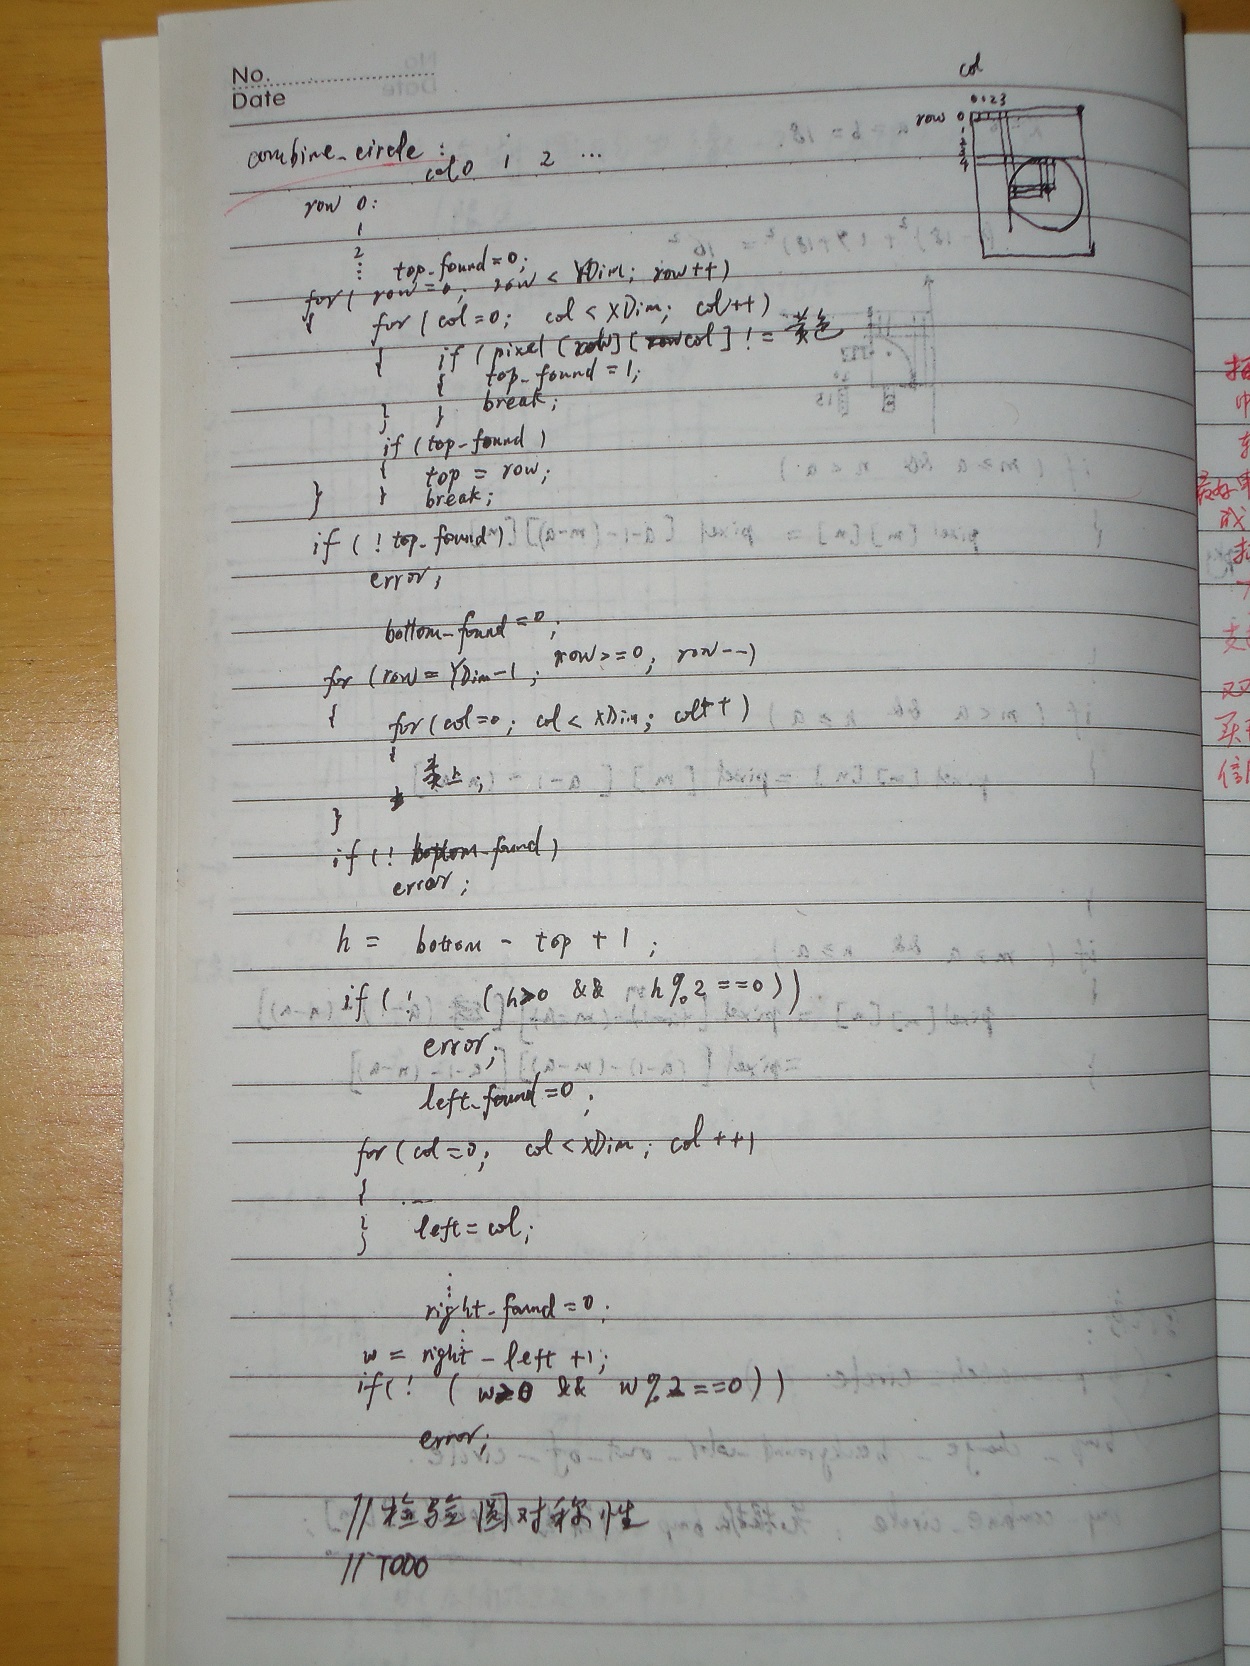 No.
Date
col
0 1 2 3
row 0
1
2
3
4
combine_circle :
col 0 1 2 ...
row 0:
1
2
⋮ top_found=0;
for( row=0; row < YDim; row++)
{ for( col=0; col < XDim; col++)
{ if (pixel [row] [col] != 黄色
{ top_found=1;
break;
} }
if (top_found)
{ top = row;
} } break;
if ( ! top_found)
error;
bottom_found=0;
for (row = YDim-1; row>=0; row--)
{ for(col=0; col < XDim; col++)
{
类上;
}
if (! bottom_found)
error;
h = bottom - top + 1;
if ( ! (h>0 && h%2==0))
error;
left_found=0;
for (col=0; col<XDim; col++)
{ ...
} left=col;
⋮
right_found=0;
⋮
w = right - left +1;
if(! ( w>0 && w%2==0))
error;
//检验圆对称性
//TODO
最好
成
支
双
买
信